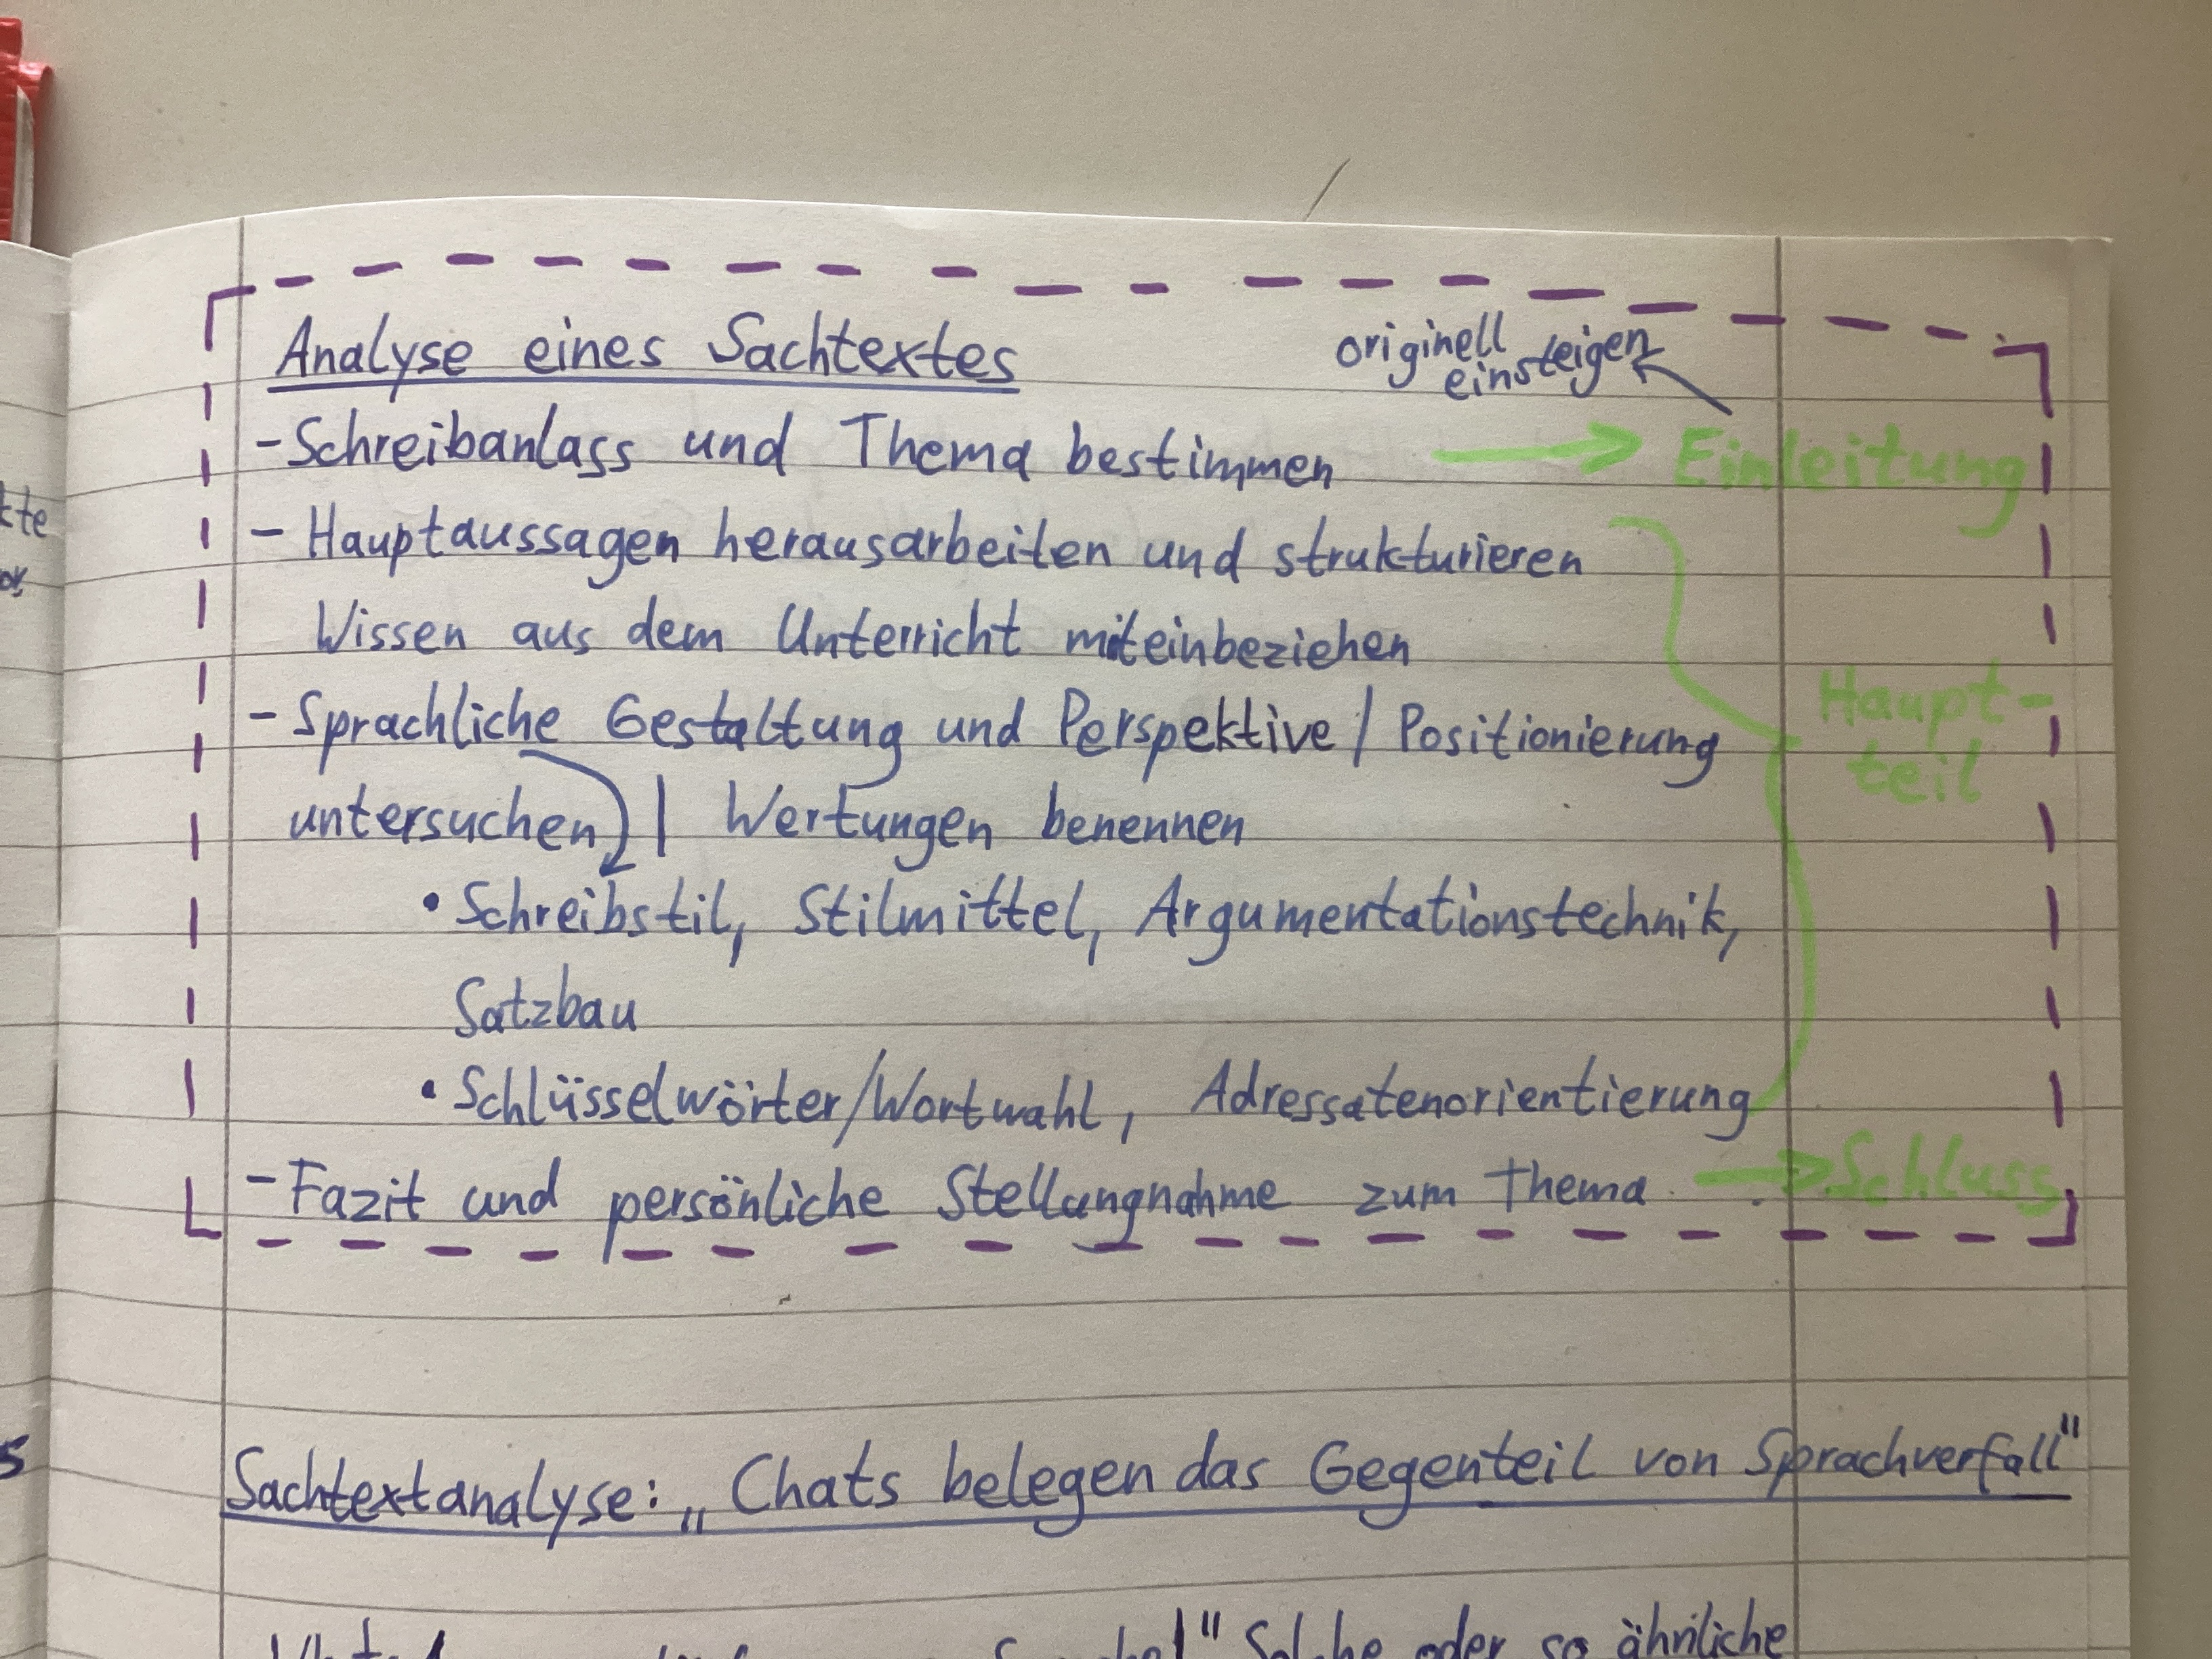 Analyse eines Sachtextes
originell
einsteigen
-Schreibanlass und Thema bestimmen → Einleitung
- Hauptaussagen herausarbeiten und strukturieren
Wissen aus dem Unterricht miteinbeziehen
- Sprachliche Gestaltung und Perspektive / Positionierung
untersuchen | Wertungen benennen
Haupt-
teil
• Schreibstil, Stilmittel, Argumentationstechnik,
Satzbau
• Schlüsselwörter/Wortwahl, Adressatenorientierung
- Fazit und persönliche Stellungnahme zum Thema → Schluss
Sachtextanalyse: „Chats belegen das Gegenteil von Sprachverfall"
" Solche oder so ähnliche